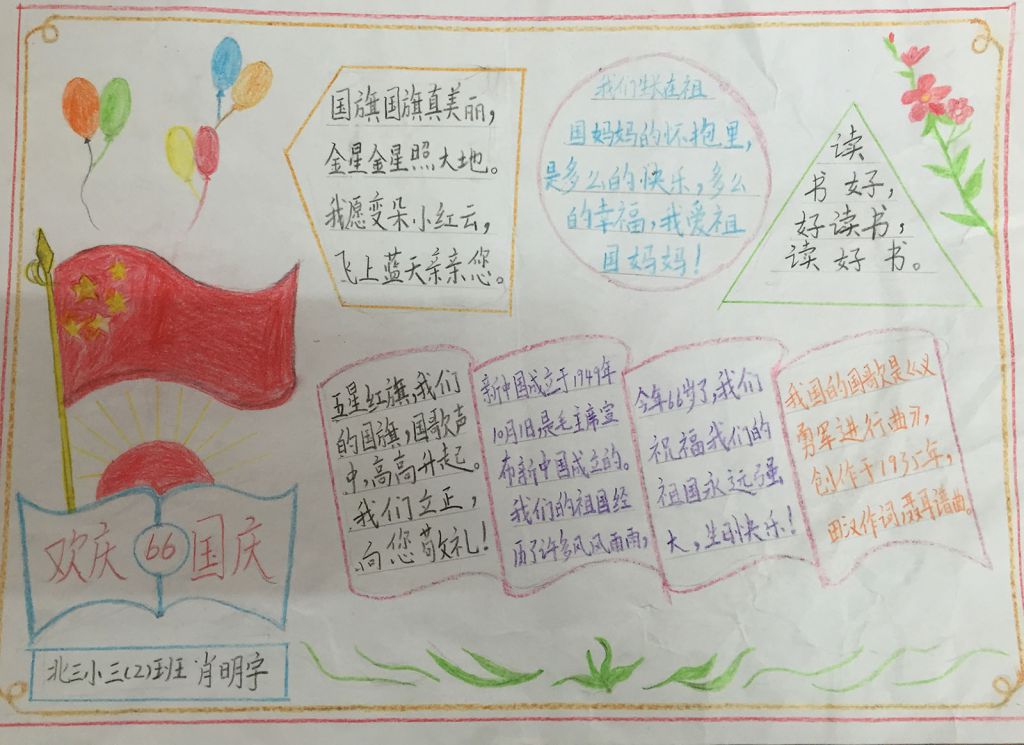 国旗国旗真美丽，
金星金星照大地。
我愿变朵小红云，
飞上蓝天亲亲您。
我们生长在祖
国妈妈的怀抱里，
是多么的快乐，多么
的幸福，我爱祖
国妈妈！
读
书好，
好读书，
读好书。
五星红旗，我们
的国旗，国歌声
中，高高升起。
我们立正，
向您敬礼！
新中国成立于1949年
10月1日，是毛主席宣
布新中国成立的。
我们的祖国经
历了许多风风雨雨，
今年66岁了，我们
祝福我们的
祖国永远强
大，生日快乐！
我国的国歌是《义
勇军进行曲》，
创作于1935年，
田汉作词，聂耳谱曲。
欢庆 66 国庆
北三小三（2）班 肖明宇